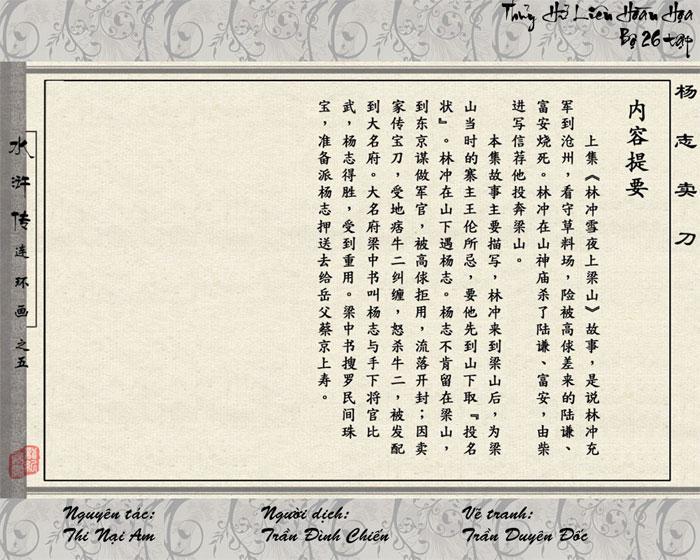 Thủy Hử Liên Hoàn Họa
Bộ 26 tập
杨志卖刀
内容提要
上集《林冲雪夜上梁山》故事，是说林冲充
军到沧州，看守草料场，险被高俅差来的陆谦、
富安烧死。林冲在山神庙杀了陆谦、富安，由柴
进写信荐他投奔梁山。
本集故事主要描写，林冲来到梁山后，为梁
山当时的寨主王伦所忌，要他先到山下取『投名
状』。林冲在山下遇杨志。杨志不肯留在梁山，
到东京谋做军官，被高俅拒用，流落开封；因卖
家传宝刀，受地痞牛二纠缠，怒杀牛二，被发配
到大名府。大名府梁中书叫杨志与手下将官比
武，杨志得胜，受到重用。梁中书搜罗民间珠
宝，准备派杨志押送去给岳父蔡京上寿。
水浒传连环画之五
Nguyên tác:
Thi Nại Am
Người dịch:
Trần Đình Chiến
Vẽ tranh:
Trần Duyên Đốc